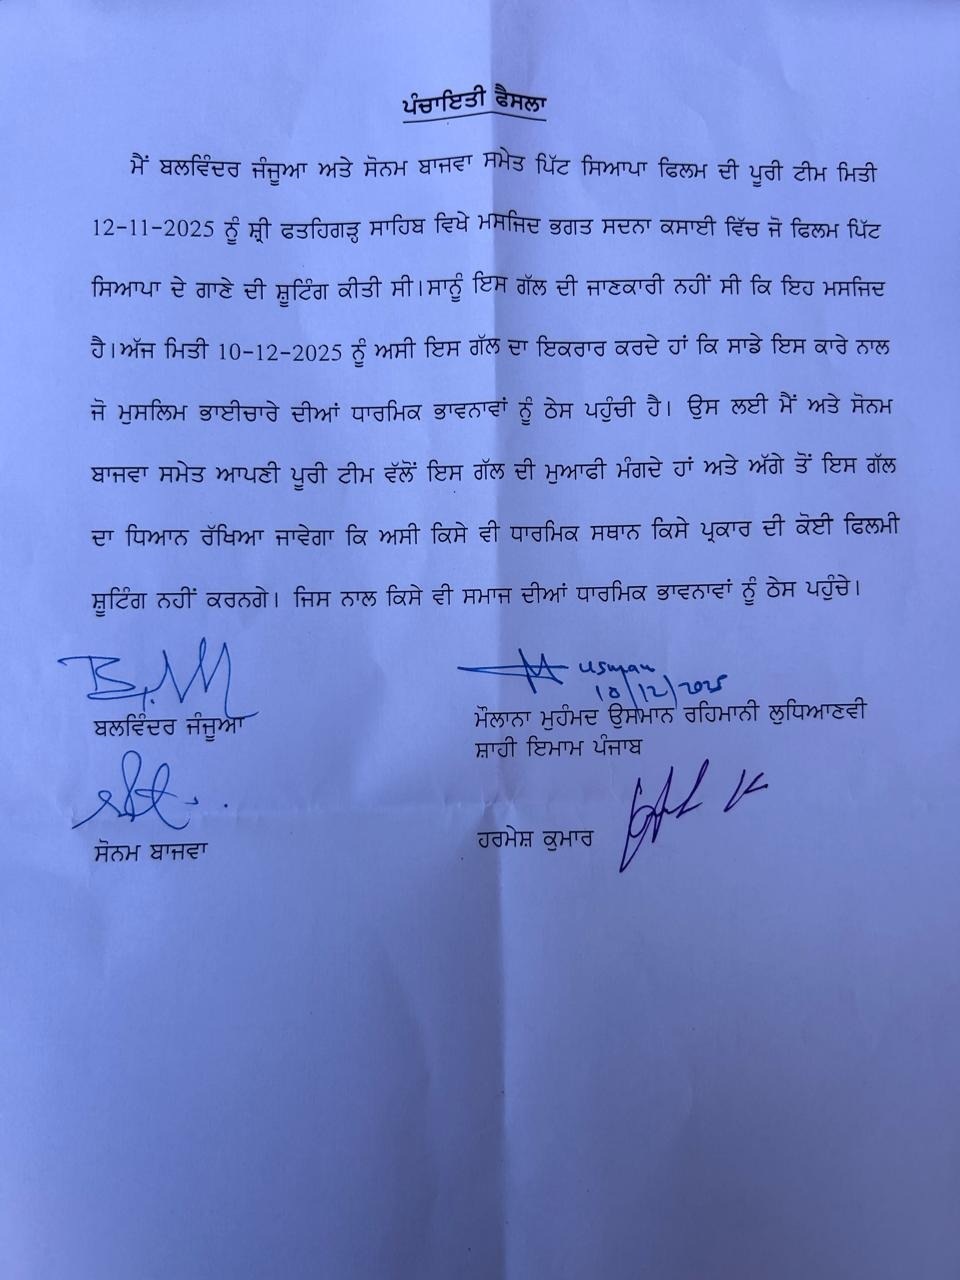 ਪੰਚਾਇਤੀ ਫੈਸਲਾ
ਮੈਂ ਬਲਵਿੰਦਰ ਜੰਜੂਆ ਅਤੇ ਸੋਨਮ ਬਾਜਵਾ ਸਮੇਤ ਪਿੱਟ ਸਿਆਪਾ ਫਿਲਮ ਦੀ ਪੂਰੀ ਟੀਮ ਮਿਤੀ
12-11-2025 ਨੂੰ ਸ਼੍ਰੀ ਫਤਹਿਗੜ੍ਹ ਸਾਹਿਬ ਵਿਖੇ ਮਸਜਿਦ ਭਗਤ ਸਦਨਾ ਕਸਾਈ ਵਿੱਚ ਜੋ ਫਿਲਮ ਪਿੱਟ
ਸਿਆਪਾ ਦੇ ਗਾਣੇ ਦੀ ਸ਼ੂਟਿੰਗ ਕੀਤੀ ਸੀ। ਸਾਨੂੰ ਇਸ ਗੱਲ ਦੀ ਜਾਣਕਾਰੀ ਨਹੀਂ ਸੀ ਕਿ ਇਹ ਮਸਜਿਦ
ਹੈ। ਅੱਜ ਮਿਤੀ 10-12-2025 ਨੂੰ ਅਸੀ ਇਸ ਗੱਲ ਦਾ ਇਕਰਾਰ ਕਰਦੇ ਹਾਂ ਕਿ ਸਾਡੇ ਇਸ ਕਾਰੇ ਨਾਲ
ਜੋ ਮੁਸਲਿਮ ਭਾਈਚਾਰੇ ਦੀਆਂ ਧਾਰਮਿਕ ਭਾਵਨਾਵਾਂ ਨੂੰ ਠੇਸ ਪਹੁੰਚੀ ਹੈ। ਉਸ ਲਈ ਮੈਂ ਅਤੇ ਸੋਨਮ
ਬਾਜਵਾ ਸਮੇਤ ਆਪਣੀ ਪੂਰੀ ਟੀਮ ਵੱਲੋਂ ਇਸ ਗੱਲ ਦੀ ਮੁਆਫੀ ਮੰਗਦੇ ਹਾਂ ਅਤੇ ਅੱਗੇ ਤੋਂ ਇਸ ਗੱਲ
ਦਾ ਧਿਆਨ ਰੱਖਿਆ ਜਾਵੇਗਾ ਕਿ ਅਸੀ ਕਿਸੇ ਵੀ ਧਾਰਮਿਕ ਸਥਾਨ ਕਿਸੇ ਪ੍ਰਕਾਰ ਦੀ ਕੋਈ ਫਿਲਮੀ
ਸ਼ੂਟਿੰਗ ਨਹੀਂ ਕਰਨਗੇ। ਜਿਸ ਨਾਲ ਕਿਸੇ ਵੀ ਸਮਾਜ ਦੀਆਂ ਧਾਰਮਿਕ ਭਾਵਨਾਵਾਂ ਨੂੰ ਠੇਸ ਪਹੁੰਚੇ।
usman
10/12/2025
ਬਲਵਿੰਦਰ ਜੰਜੂਆ
ਮੌਲਾਨਾ ਮੁਹੰਮਦ ਉਸਮਾਨ ਰਹਿਮਾਨੀ ਲੁਧਿਆਣਵੀ
ਸ਼ਾਹੀ ਇਮਾਮ ਪੰਜਾਬ
ਸੋਨਮ ਬਾਜਵਾ
ਹਰਮੇਸ਼ ਕੁਮਾਰ